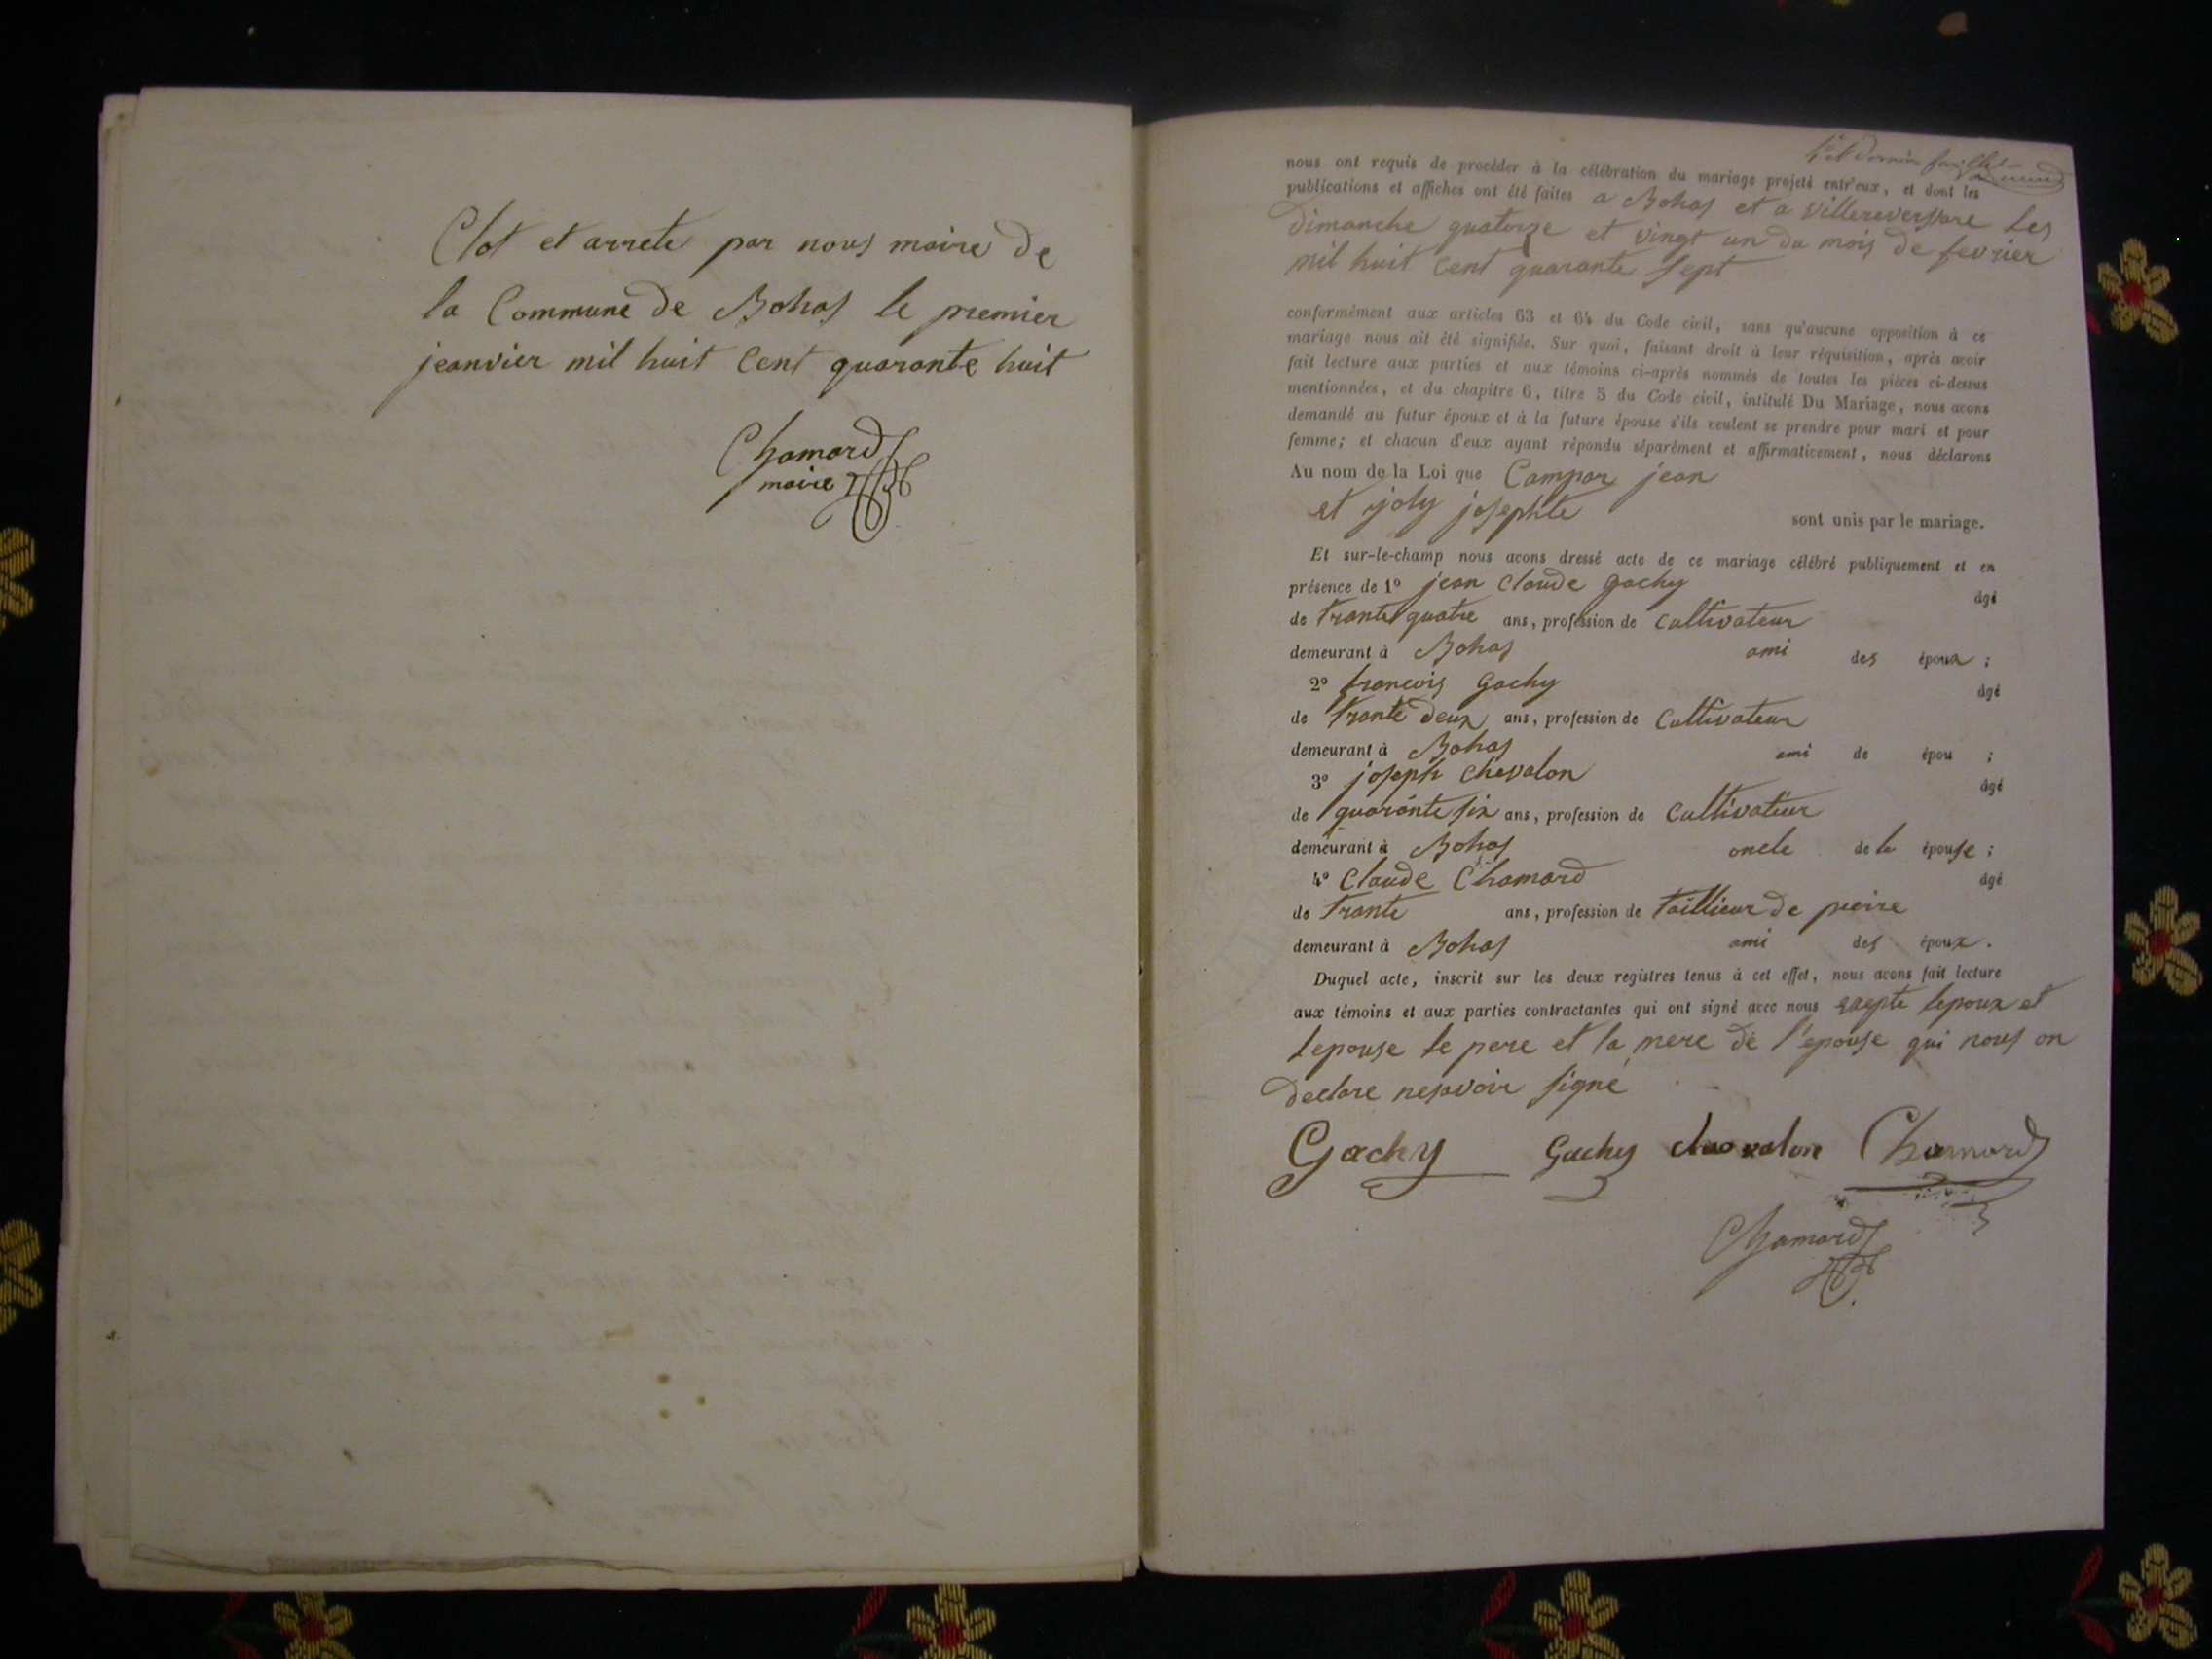 Clot et arrete par nous maire de
la Commune de Bohas le premier
jeanvier mil huit Cent quarante huit
Chamard
maire
et dernier
nous ont requis de procéder à la célébration du mariage projeté entr'eux, et dont les
publications et affiches ont été faites a Bohas et a Villereversure Les
dimanche quatorze et vingt un du mois de fevrier
mil huit Cent quarante sept
conformément aux articles 63 et 64 du Code civil, sans qu'aucune opposition à ce
mariage nous ait été signifiée. Sur quoi, faisant droit à leur réquisition, après avoir
fait lecture aux parties et aux témoins ci-après nommés de toutes les pièces ci-dessus
mentionnées, et du chapitre 6, titre 5 du Code civil, intitulé Du Mariage, nous avons
demandé au futur époux et à la future épouse s'ils veulent se prendre pour mari et pour
femme; et chacun d'eux ayant répondu séparément et affirmativement, nous déclarons
Au nom de la Loi que Campar jean
et joly josephte sont unis par le mariage.
Et sur-le-champ nous avons dressé acte de ce mariage célébré publiquement et en
présence de 1° jean Claude gachy âgé
de trante quatre ans, profession de Cultivateur
demeurant à Bohas ami des époux ;
2° francois Gachy âgé
de trante deux ans, profession de Cultivateur
demeurant à Bohas ami de épou ;
3° joseph chevalon âgé
de quarante six ans, profession de Cultivateur
demeurant à Bohas oncle de le épouse ;
4° Claude Chamard âgé
de trante ans, profession de taillieur de pierre
demeurant à Bohas ami des époux .
Duquel acte, inscrit sur les deux registres tenus à cet effet, nous avons fait lecture
aux témoins et aux parties contractantes qui ont signé avec nous exepte lepoux et
lepouse le pere et la mere de l'epouse qui nous on
declare nesavoir signé
Gachy Gachy chevalon Chamard
Chamard